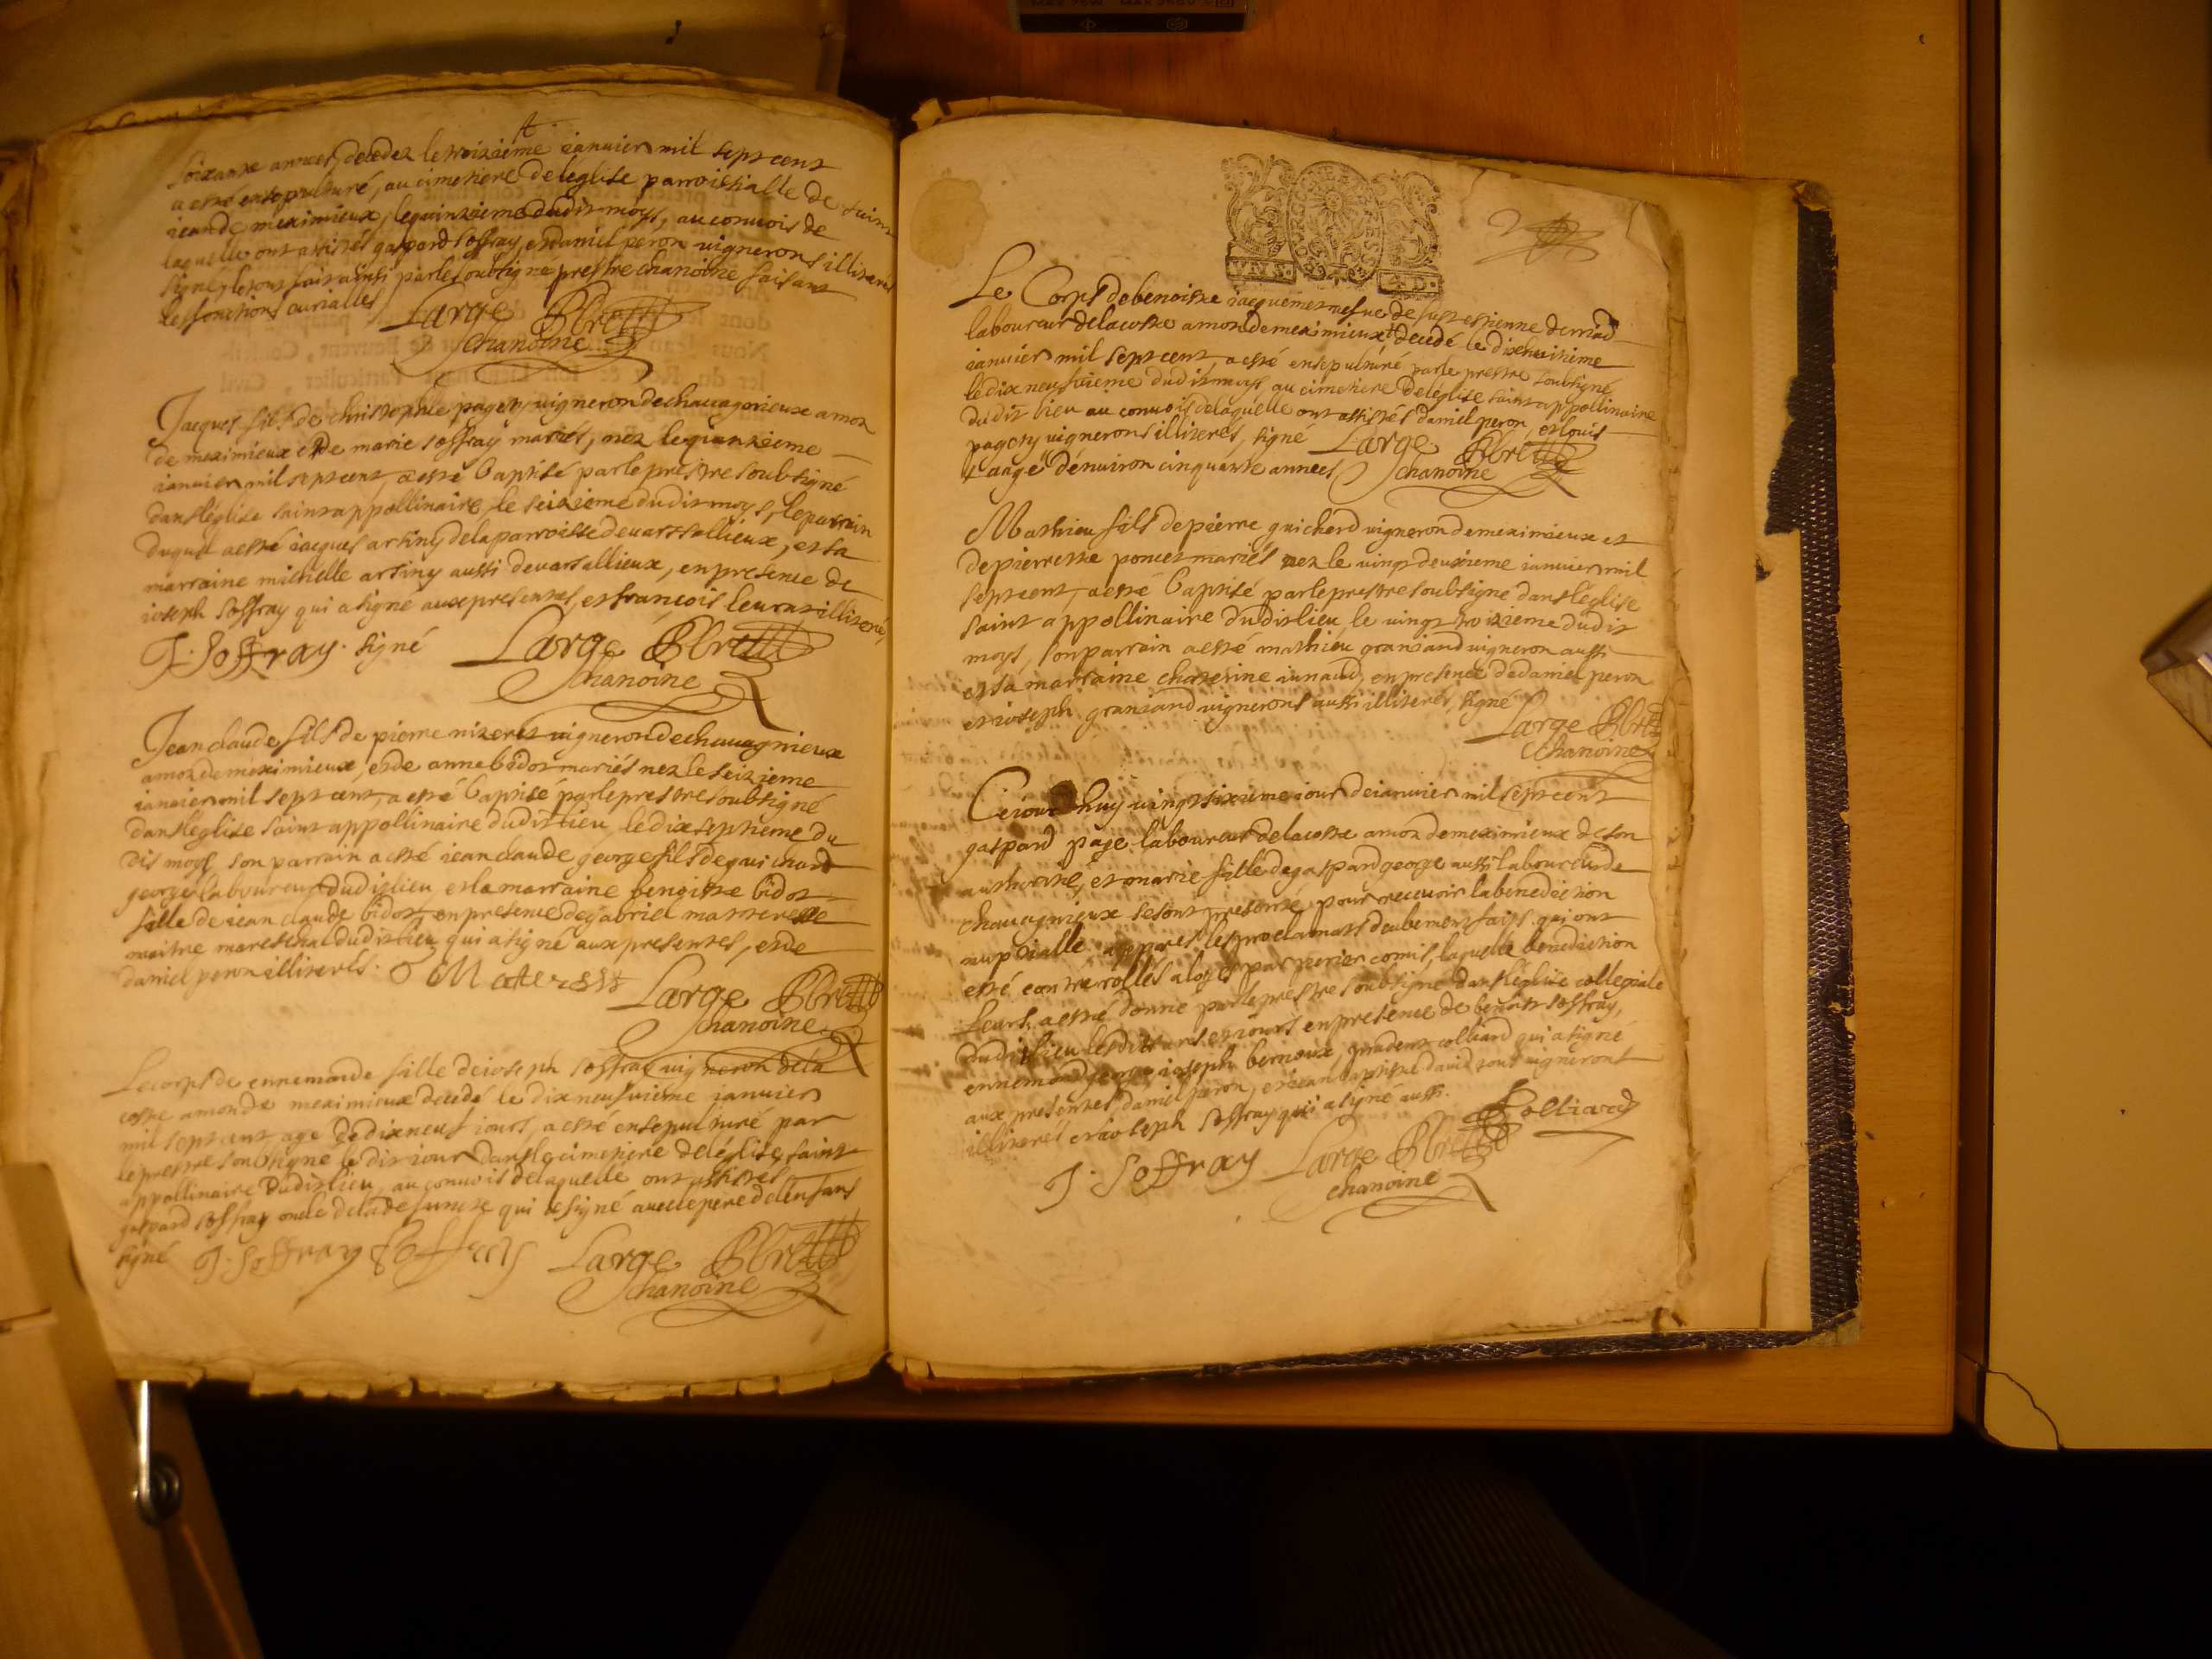 soixante années, decedez le troizieme ianuier mil sept cent
a esté ensepulturé, au cimetiere de leglise parroissialle de saint
iean de meximieux, le quinzieme dudit moys, au conuois de
laquelle ont assistés gaspard soffray, et daniel peron uignerons illiterés
signé, le tout fait ainsi par le soubsigné prestre chanoine faisant
les fonctions curialles
Large Pbre
chanoine
Jacques fils de christophle pagey, uigneron de chauagnieux amon
de meximieux et de marie soffray mariés, nez le quinzieme
ianuier mil sept cent, a esté baptisé par le prestre soubsigné
dans l'église saint appollinaire, le seizieme dudit moys, le parrain
duquel a esté iacques artiny de la parroisse de uarssallieux, et sa
marraine michelle artiny aussi de uarsallieux, en presence de
ioseph soffray qui a signé aux presentes, et françois leurat illiteré,
J. Soffray. signé Large Pbre
chanoine
Jean claude fils de pierre uigneron de chauagnieux
amon de meximieux, et de anne bidot mariés nez le seizieme
ianuier mil sept cent, a esté baptisé par le prestre soubsigné
dans l'église saint appollinaire dudit lieu, le dix septieme du
dit moys, son parrain a esté iean claude george fils de guichard
george laboureur dudit lieu et la marraine benoitte bidot
fille de iean claude bidot, en presence de gabriel
maitre mareschal dudit lieu qui a signé aux presentes, et de
daniel peron illiterés.
Large Pbre
chanoine
Le corps de ennemonde fille de ioseph soffray uigneron de la
coste amon de meximieux decedé le dix neufuieme ianuier
mil sept cent, agé de dix neuf iours, a esté ensepulturé par
le prestre soubsigné le dit iour dans le cimetiere de léglise saint
appollinaire dudit lieu, au conuois de laquelle ont assistés
gaspard soffray oncle de la defuncte qui a signé auec le pere de lenfant
signé J. Soffray Soffray Large Pbre
chanoine
VNS. 4.D.
Le Corps de benoiste iacquemet uefue de estienne
laboureur de la coste amon de meximieux + decedé le dixhuitieme
ianuier mil sept cent, a esté ensepulturé par le prestre soubsigné
le dix neufuieme dudit moys au cimetiere de léglise saint appollinaire
dudit lieu au conuois de laquelle ont assistés daniel peron, et louis
pagey uignerons illiterés, signé Large Pbre
+ aagé dénuiron cinquante années chanoine
Mathieu fils de pierre guichard uigneron de meximieux et
de pierrette poncet mariés nez le uingt deuxieme ianuier mil
sept cent, a esté baptisé par le prestre soubsigné dans léglise
saint appollinaire dudit lieu, le uingt troizieme dudit
moys, son parrain a esté mathieu uigneron aussi
et sa marraine chaterine iunand, en presence de daniel peron
et ioseph uignerons aussi illiterés, signé
Large Pbre
chanoine
Ceiourdhuy uingt sixieme iour de ianuier mil sept cent
gaspard page laboureur de la coste amon de meximieux de son
authorité, et marie fille de gaspard george aussi laboureur de
chauagnieux se sont presenté pour receuoir la benediction
nuptialle apprés les proclamats deubement faits qui ont
esté contrerollés par comis, laquelle benediction
leurs a esté donné par le prestre soubsigné dans léglise collegiale
dudit lieu lesdits et iours en presence de benoist soffray,
ennemond george, ioseph bernoux, prudent colliard qui a signé
aux presentes, daniel peron, et iean baptiste dauid tous uignerons
illiterés et ioseph soffray qui a signé aussi. Colliard
J. Soffray Large Pbre
chanoine